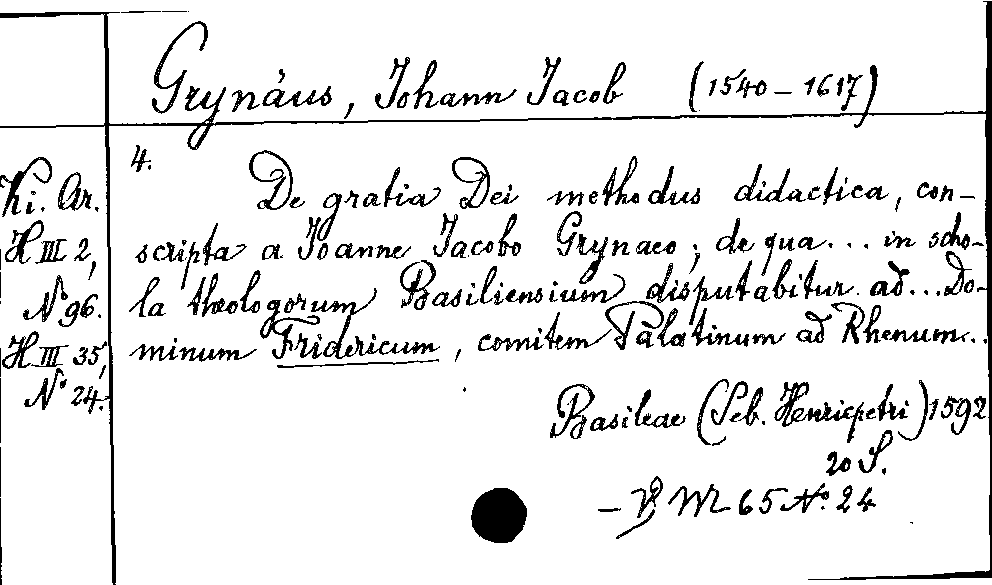 Grynäus, Johann Jacob (1540 – 1617)
4.
Ki. Ar.
H III 2,
No 96.
H III 35,
No 24.
De gratia Dei methodus didactica, con-
scripta a Joanne Jacobo Grynaeo; de qua ... in scho-
la theologorum Basiliensium disputabitur ad ... Do-
minum Fridericum, comitem Palatinum ad Rhenum..
Basileae (Seb. Henricpetri) 1592
20 S.
– 65 No. 24